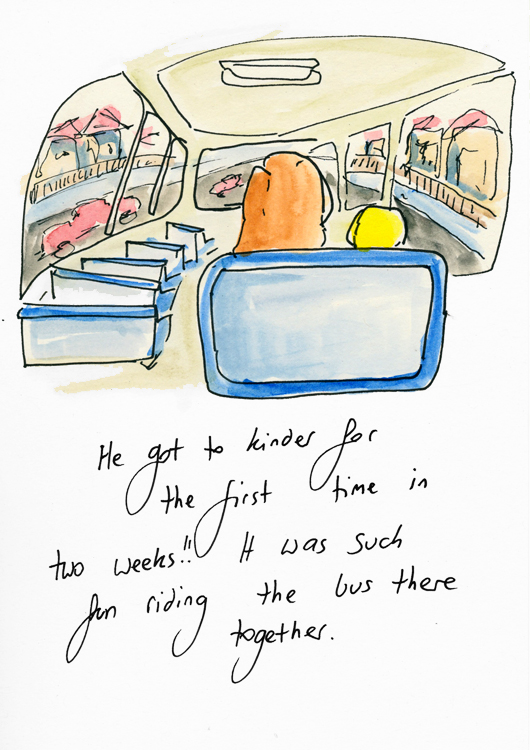 He got to kinder for
the first time in
two weeks!! It was such
fun riding the bus there
together.